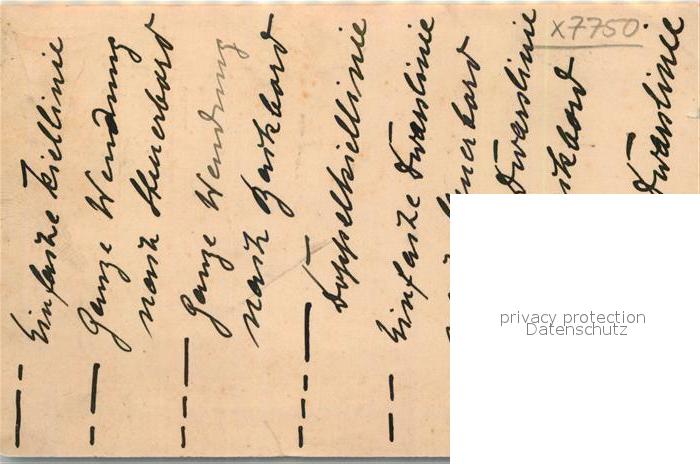 Einfache Kiellinie
Ganze Wendung
nach Steuerbord
Ganze Wendung
nach Backbord
Doppelkiellinie
Einfache Dwarslinie
Dwarslinie
Dwarslinie
x7750
privacy protection
Datenschutz